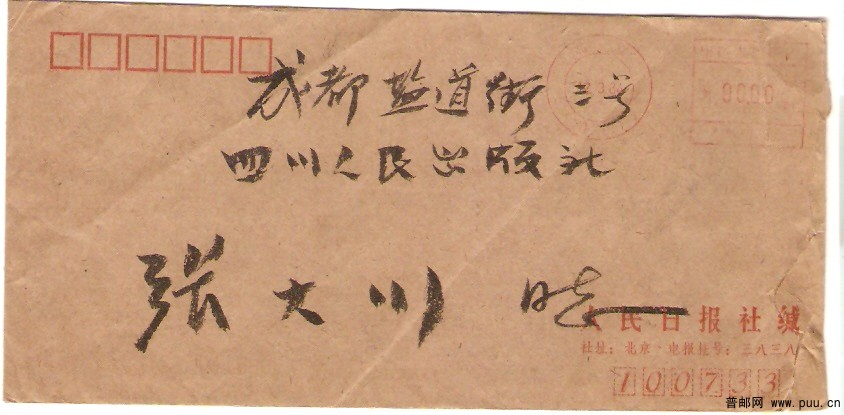 成都盐道街三号
四川人民出版社
张大川
人民日报社缄
社址：北京·电报挂号：三八三八
100733
00.00
普邮网 www.puu.cn